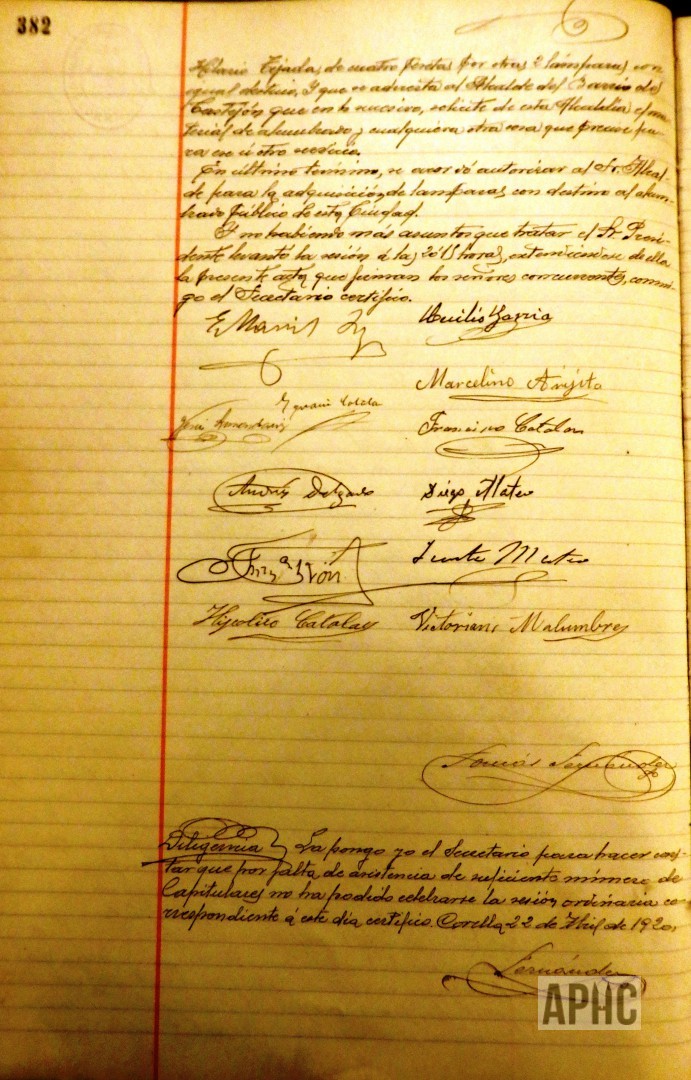 382
Hilario Tejada, de cuatro pesetas por otras 2 lámparas con
igual destino, Y que se advierta al Alcalde del Barrio de
Castejón que en lo sucesivo, solicite de esta Alcaldía el ma-
terial de alumbrado y cualquiera otra cosa que precise pa-
ra ese ú otro servicio.
En último termino, se acordó autorizar al Sr. Alcal-
de para la adquisición de lamparas con destino al alum-
brado público de esta Ciudad.
Y no habiendo más asuntos que tratar el Sr. Presi-
dente levantó la sesión á las 20'15 horas, extendiendose de ella
la presente acta que firman los señores concurrentes, conmi-
go el Secretario certifico.
Lucilio Garcia
Marcelino Arijita
Francisco Catalan
Andrés Delgado Diego Mateo
Mateo
Hipolito Catalan Victoriano Malumbres
Tomás Fernández
Diligencia La pongo yo el Secretario para hacer cons-
tar que por falta de asistencia de suficiente número de
Capitulares no ha podido celebrarse la sesión ordinaria co-
rrespondiente á este día certifico. Corella 22 de Abril de 1920,
Fernández
APHC